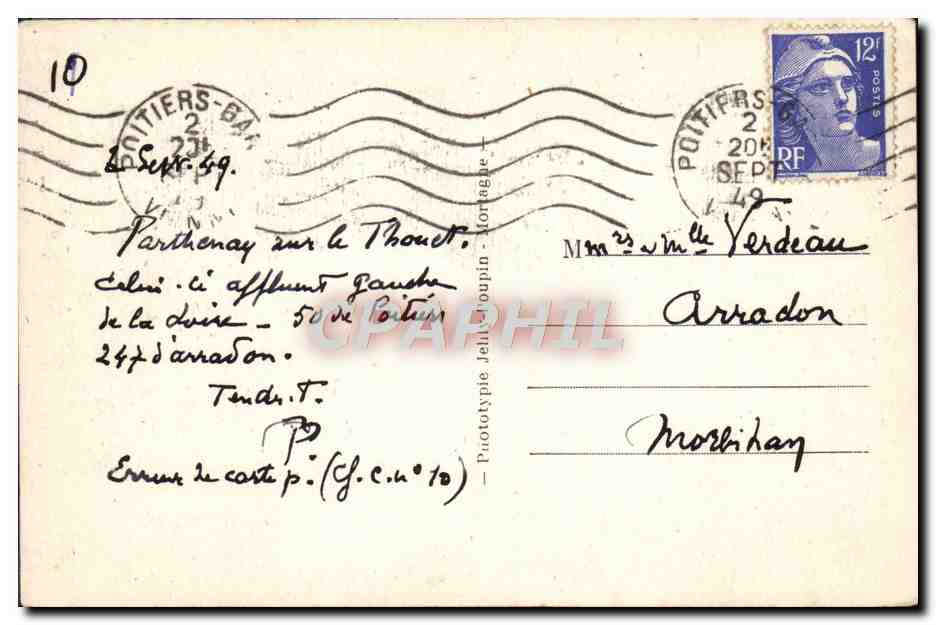 10
POITIERS-GAR
2
20H
2 Sept. 49.
POITIERS-GA
2
20H
SEPT
49
12F
POSTES
RF
Parthenay sur le Thouet.
Celui-ci affluent gauche
de la Loire - 50 de Poitiers
247 d'arradon.
Tendr.t.
P
Erreur de carte p. (cf. C. n° 10)
Phototypie Jehly-Poupin - Mortagne
M mrs & Mlle Verdeau
Arradon
Morbihan
CPAPHIL